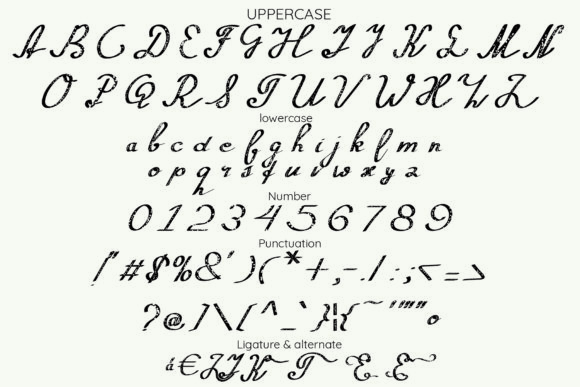 UPPERCASE
A B C D E F G H I J K L M N
O P Q R S T U V W X Y Z
lowercase
a b c d e f g h i j k l m n
o p q r s t u v w x y z
Number
0 1 2 3 4 5 6 7 8 9
Punctuation
! " # $ % & ' ) ( * + , - . / : ; < = >
? @ ] \ [ ^ _ ` } | {
Ligature & alternate
€